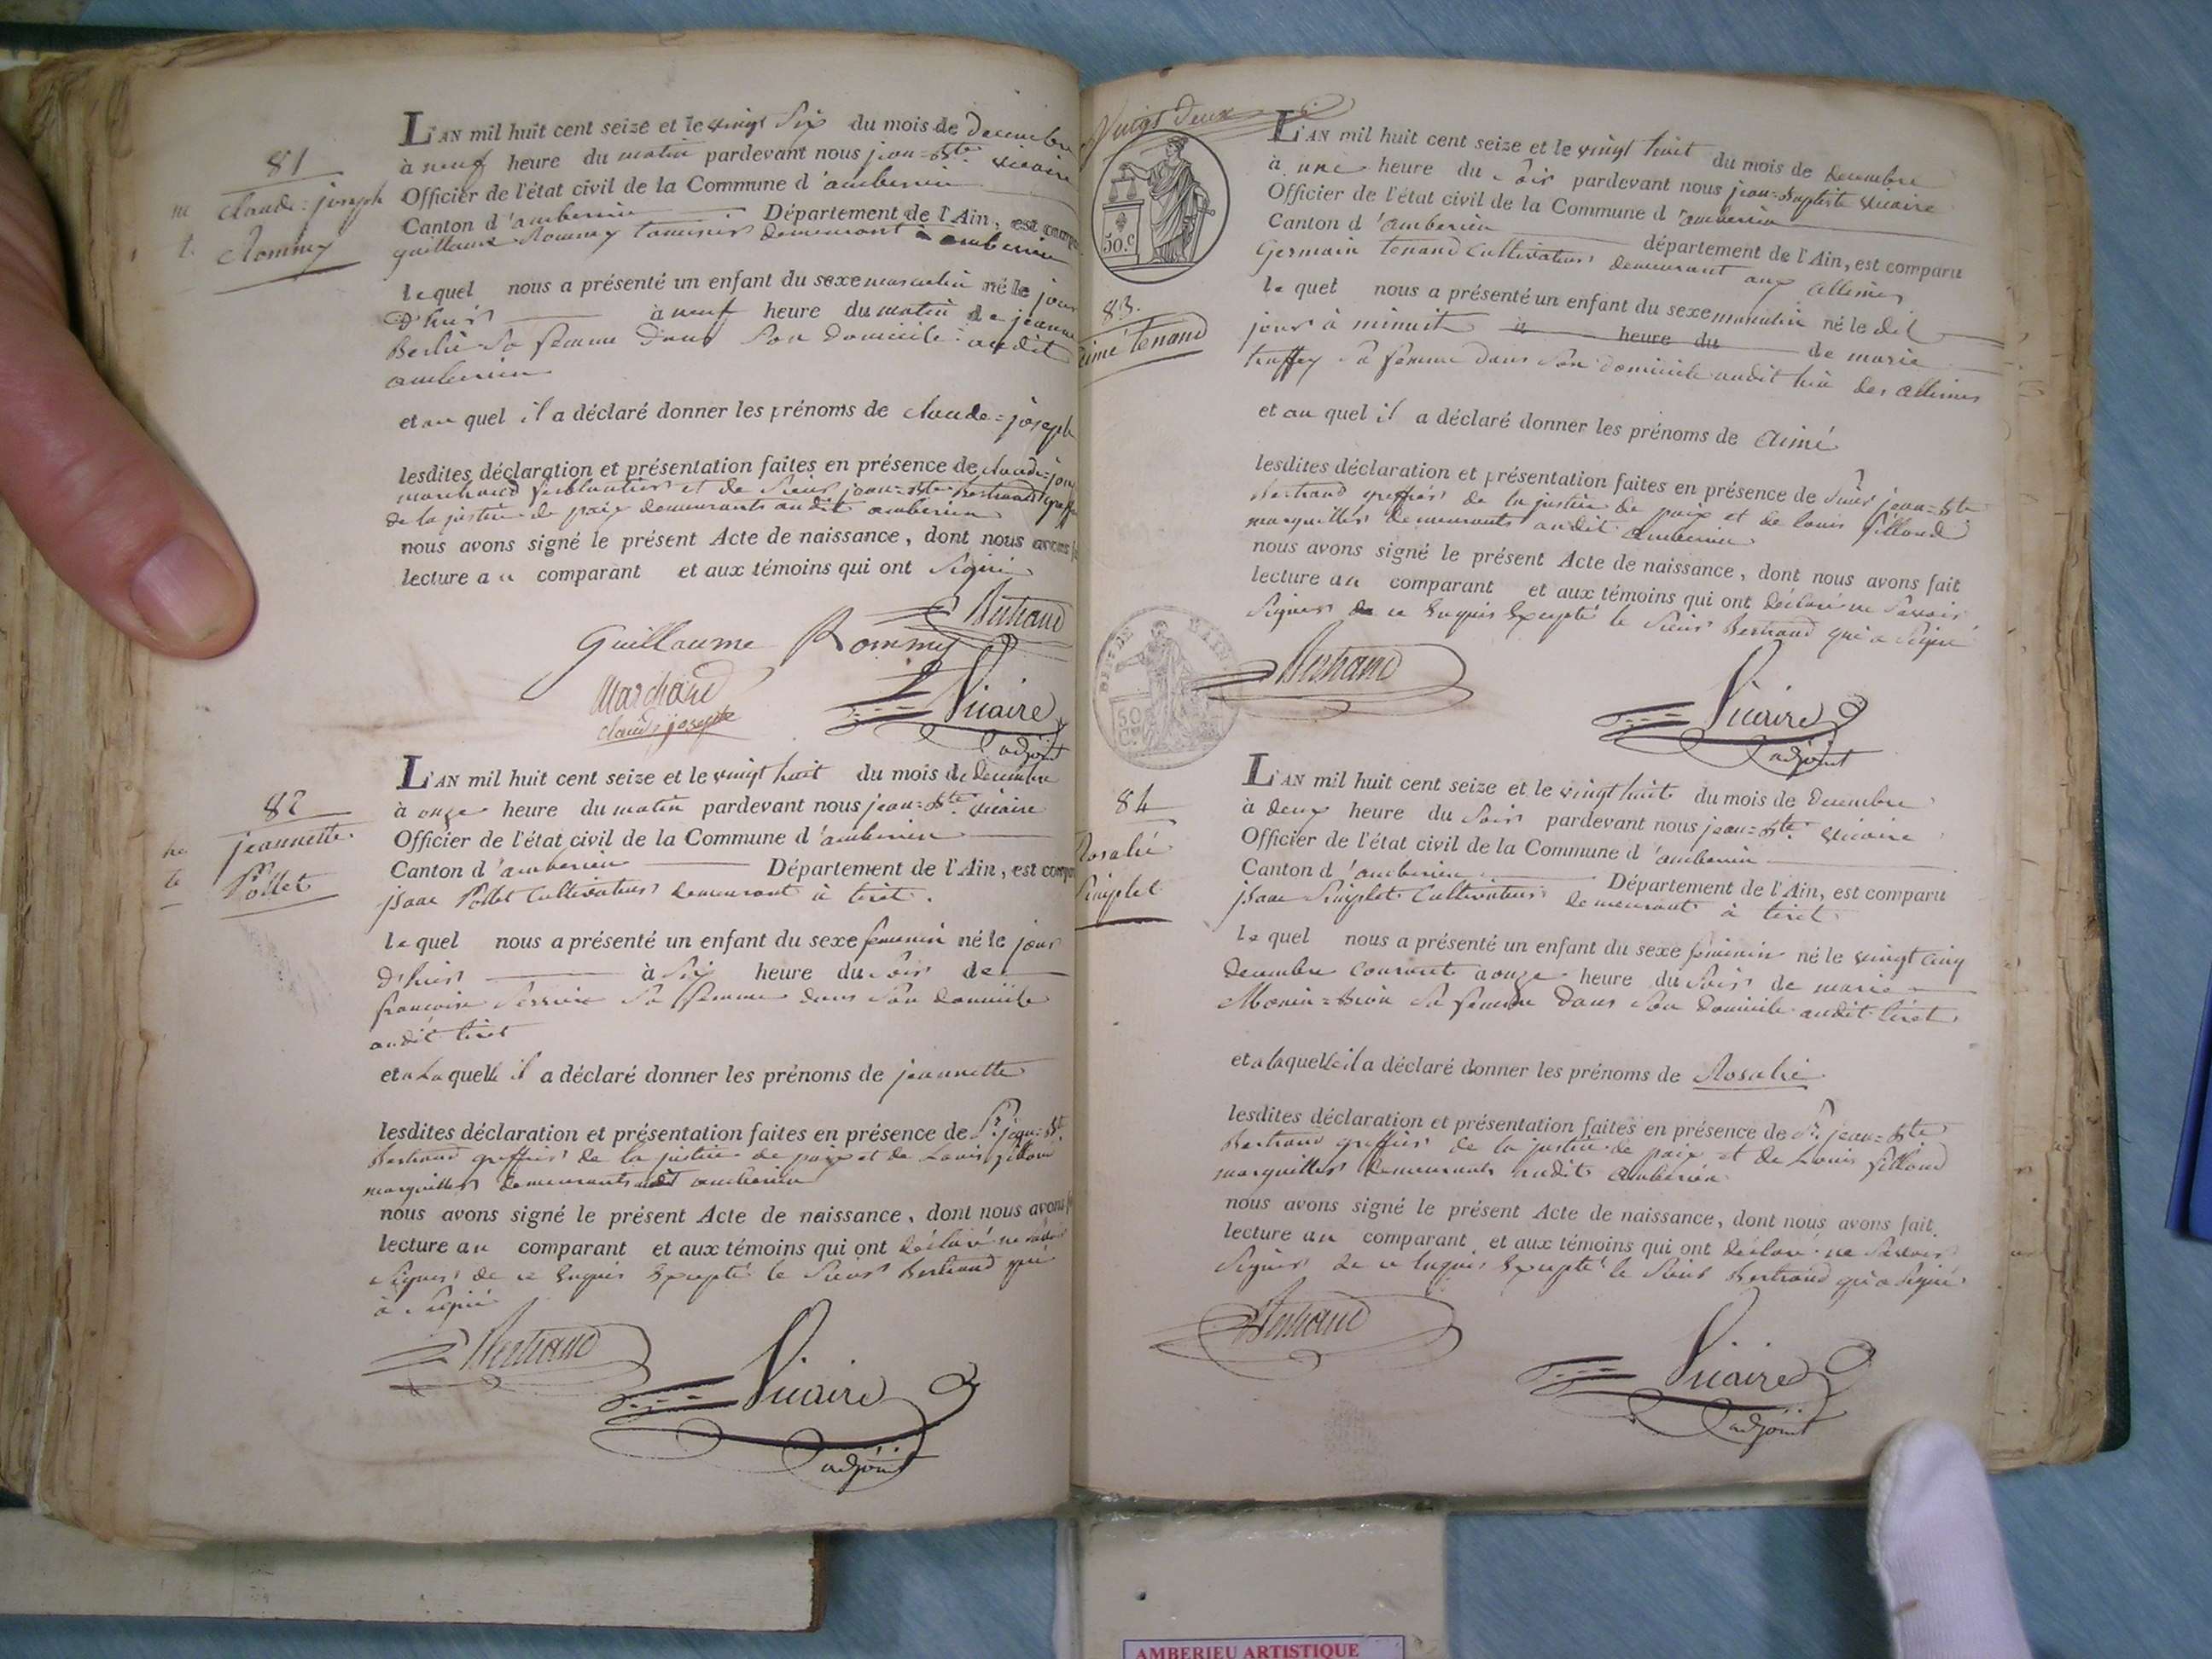 81
Claude=joseph
Rommey
L'AN mil huit cent seize et le vingt Six du mois de Decembre
à neuf heure du matin pardevant nous jean=Bte vicaire
Officier de l'état civil de la Commune d'amberieu
Canton d'amberieu Département de l'Ain, est
guillaume Rommey demeurant a amberieu
lequel nous a présenté un enfant du sexe masculin né le jour
D'hier à neuf heure du matin de jeanne
Sa femme Dans Son Domicile audit
amberieu
et au quel il a déclaré donner les prénoms de claude=joseph
lesdites déclaration et présentation faites en présence de claude=
marchand ferblantier et de Sieur jean=Bte Bertrand
de la justice de paix demeurants audit amberieu
nous avons signé le présent Acte de naissance, dont nous avons
lecture au comparant et aux témoins qui ont Signé
Bertrand
Guillaume Rommey
Marchand
claude joseph
Vicaire
adjoint
82
jeannette
Pollet
L'AN mil huit cent seize et le vingt huit du mois de Decembre
à onze heure du matin pardevant nous jean=Bte vicaire
Officier de l'état civil de la Commune d'amberieu
Canton d'amberieu Département de l'Ain, est
isaac Pollet Cultivateur demeurant à tiret.
lequel nous a présenté un enfant du sexe femenin né le jour
D'hier à Six heure du Soir de
francoise Sa femme dans Son domicile
audit tiret
et a Laquelle il a déclaré donner les prénoms de jeannette
lesdites déclaration et présentation faites en présence de Sr. jean=Bte
Bertrand greffier de la justice de paix et de Louis fillond
marguillier demeurants audit amberieu
nous avons signé le présent Acte de naissance, dont nous avons
lecture au comparant et aux témoins qui ont déclaré ne savoir
Signer de ce Enquis Excepté le Sieur Bertrand qui
à Signé
Bertrand
Vicaire
adjoint
Vingt Deux
50.c
83.
aimé tenand
L'AN mil huit cent seize et le vingt huit du mois de decembre
à une heure du Soir pardevant nous jean=Baptiste vicaire
Officier de l'état civil de la Commune d'amberieu
Canton d'amberieu département de l'Ain, est comparu
Germain tenand Cultivateur demeurant aux allimes
lequel nous a présenté un enfant du sexe masculin né le dit
jour à minuit à heure du de marie
truffey Sa femme dans Son domicile audit lieu des allimes
et au quel il a déclaré donner les prénoms de Aimé
lesdites déclaration et présentation faites en présence de Sieur jean=Bte
Bertrand greffier de la justice de paix et de louis fillond
marguillier demeurants audit amberieu
nous avons signé le présent Acte de naissance, dont nous avons fait
lecture au comparant et aux témoins qui ont déclaré ne Savoir
Signer de ce Enquis Excepté le Sieur Bertrand qui a Signé
Bertrand
Vicaire
adjoint
84
Rosalie
Simplet
L'AN mil huit cent seize et le vingt huit du mois de Decembre
à deux heure du Soir pardevant nous jean=Bte vicaire
Officier de l'état civil de la Commune d'amberieu
Canton d'amberieu Département de l'Ain, est comparu
isaac Simplet Cultivateur demeurant à tiret
lequel nous a présenté un enfant du sexe feminin né le vingt cinq
decembre courant a onze heure du Soir de marie
Sa femme Dans Son Domicile audit tiret
et a laquelle il a déclaré donner les prénoms de Rosalie
lesdites déclaration et présentation faites en présence de Sr. jean=Bte
Bertrand greffier de la justice de paix et de Louis fillond
marguillier demeurants audit amberieu
nous avons signé le présent Acte de naissance, dont nous avons fait.
lecture au comparant et aux témoins qui ont déclaré ne Savoir
Signer de ce Enquis Excepté le Sieur Bertrand qui a Signé
Bertrand
Vicaire
adjoint
AMBERIEU ARTISTIQUE